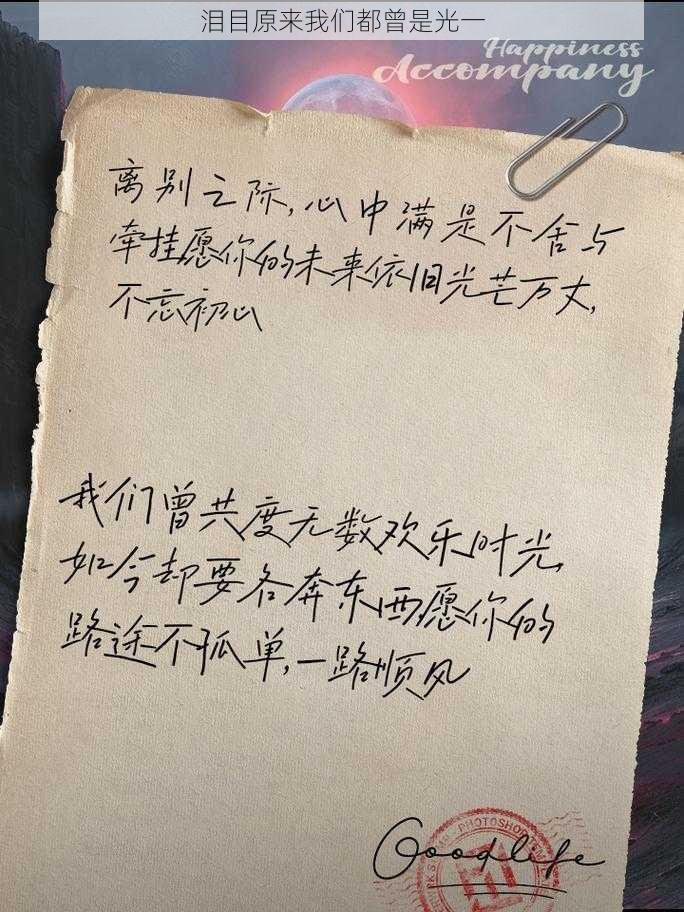 泪目原来我们都曾是光一
Happiness
Accompany
离别之际,心中满是不舍与
牵挂愿你的未来依旧光芒万丈,
不忘初心
我们曾共度无数欢乐时光,
如今却要各奔东西,愿你的
路途不孤单,一路顺风
PHOTOSHOP
Goodlife